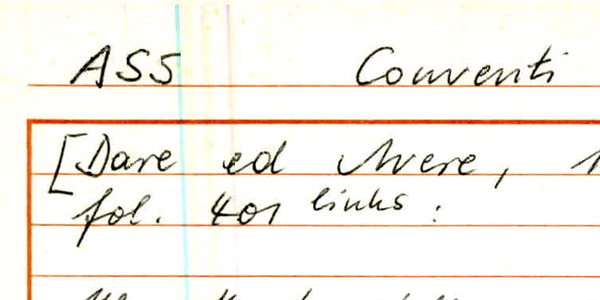 ASS Conventi
[Dare ed Avere, 1
fol. 401 links: